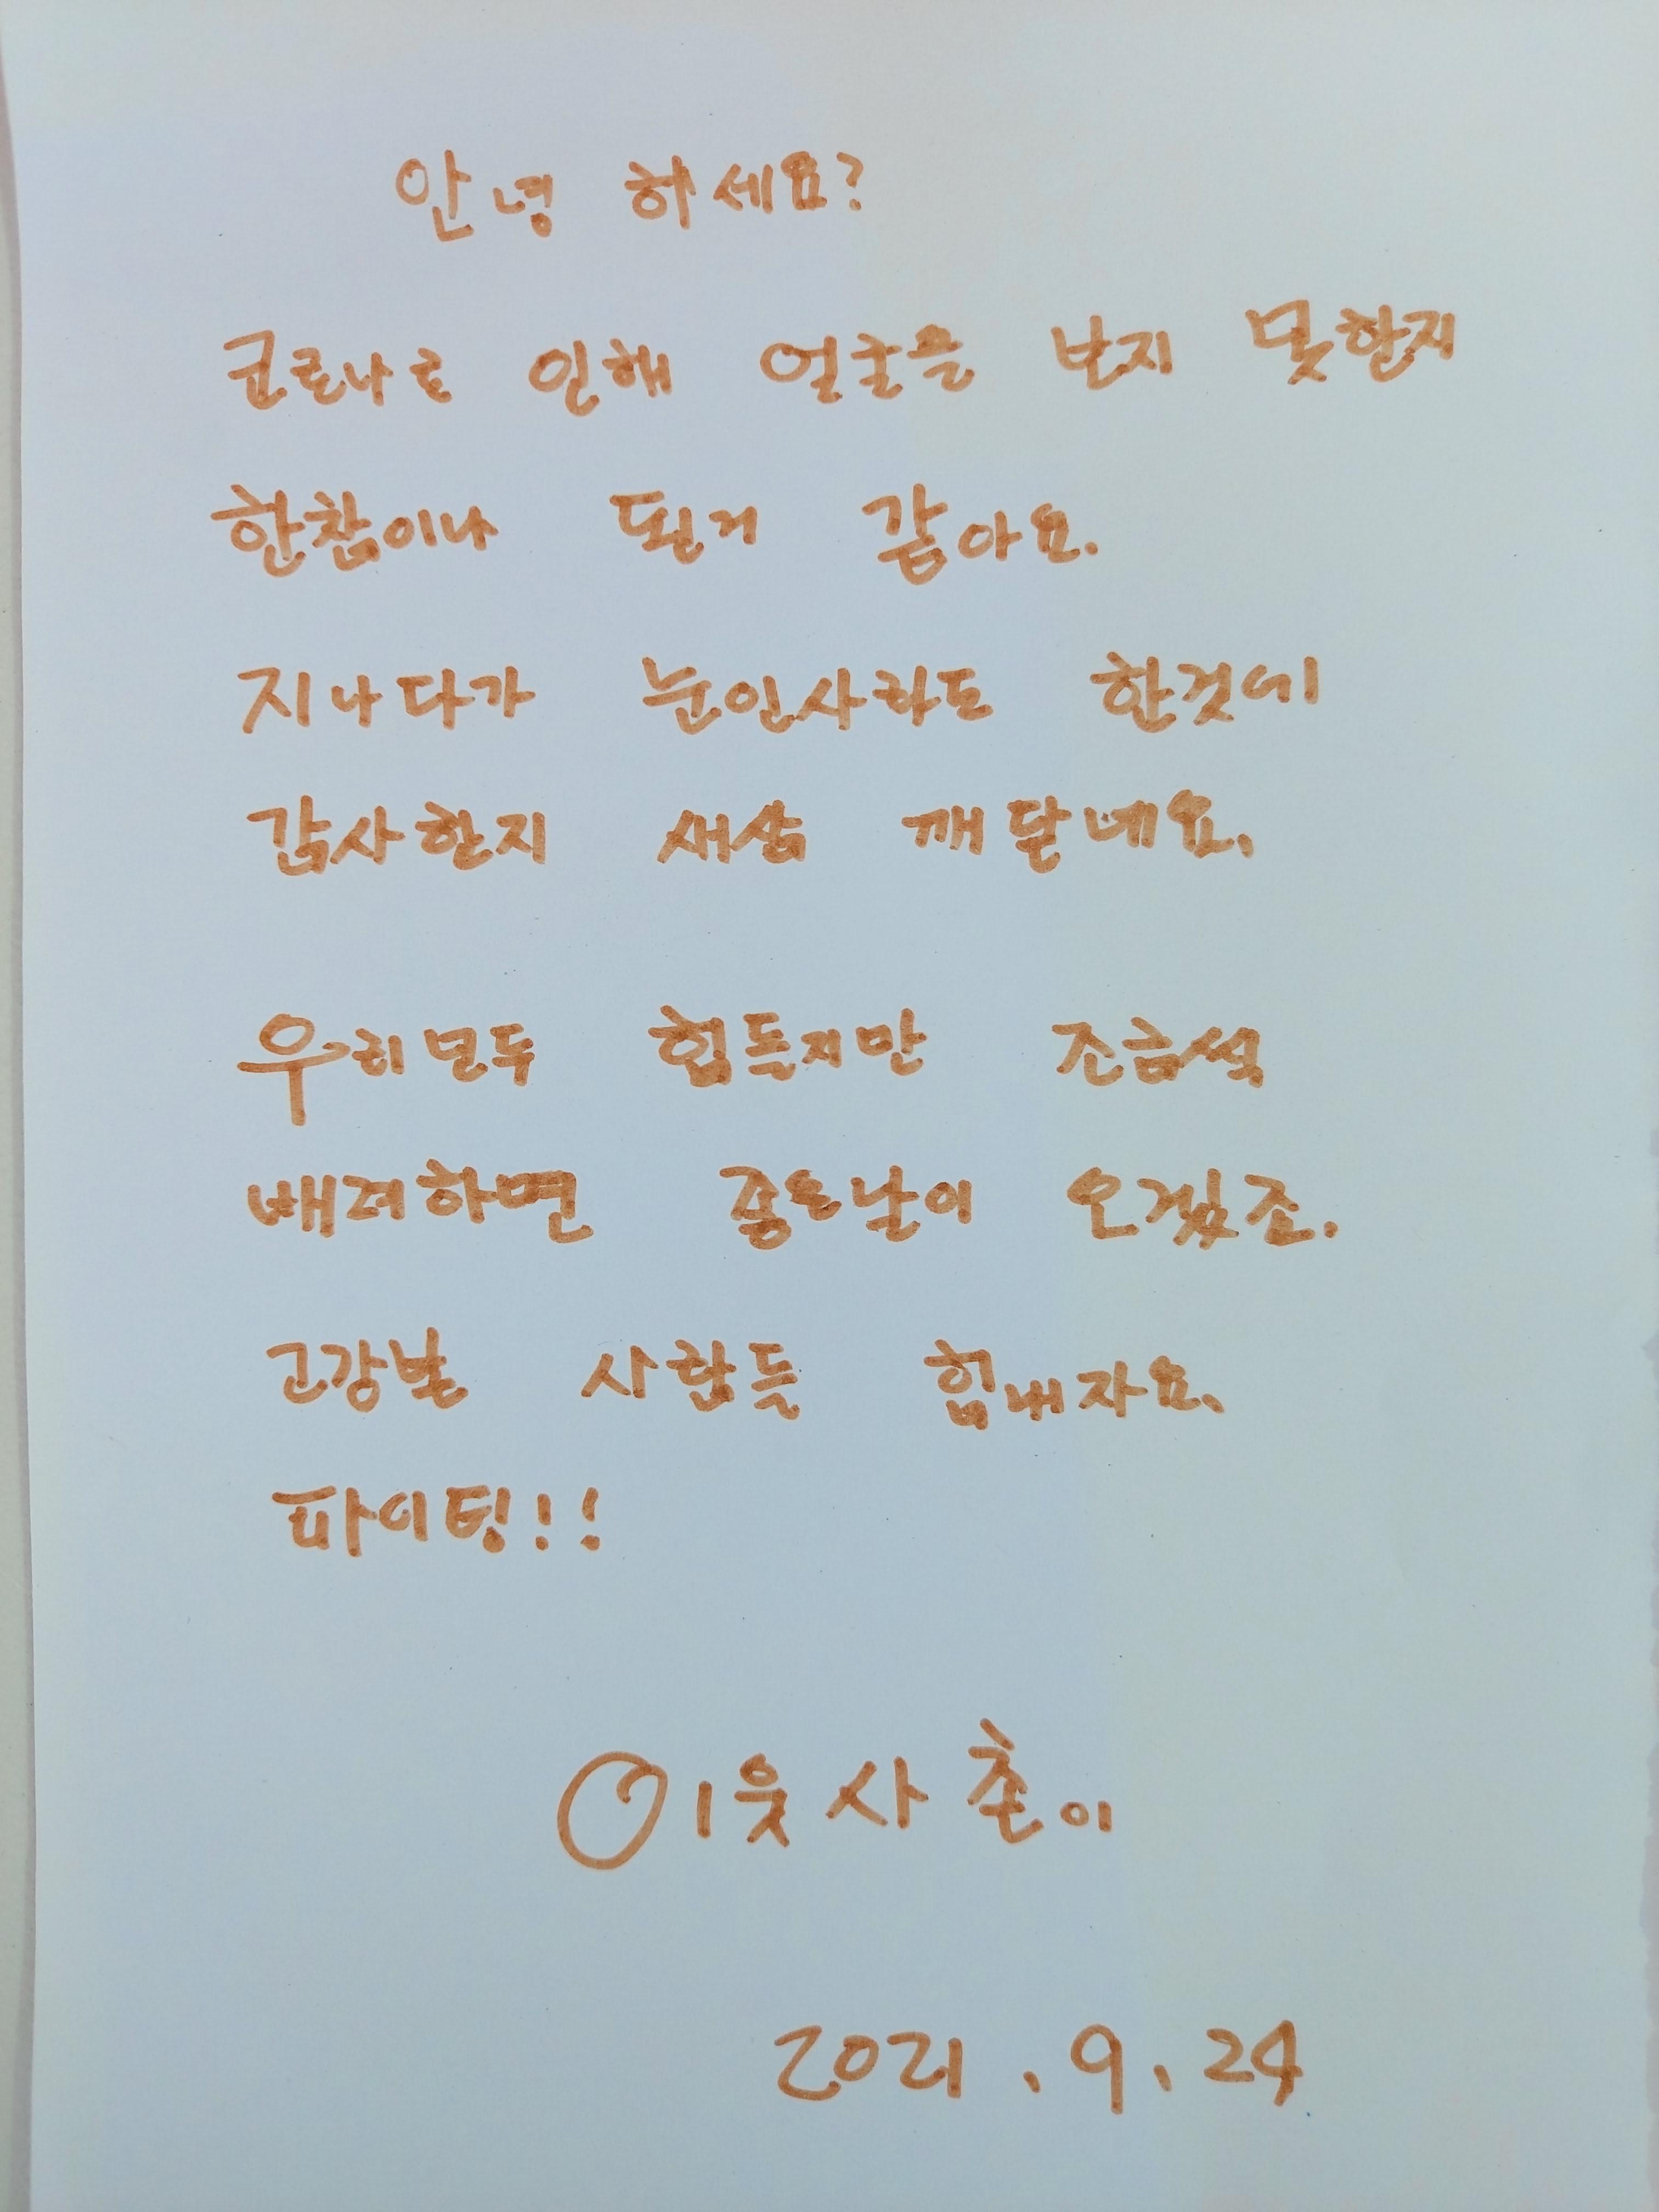 안녕 하세요?
코로나로 인해 얼굴을 보지 못한지
한참이나 된거 같아요.
지나다가 눈인사라도 한것에
감사한지 새삼 깨닫네요.
우리모두 힘든지만 조금씩
배려하면 좋은날이 오겠죠.
고강날 사람들 힘내자요.
파이팅!!
이웃사촌이
2021. 9. 24